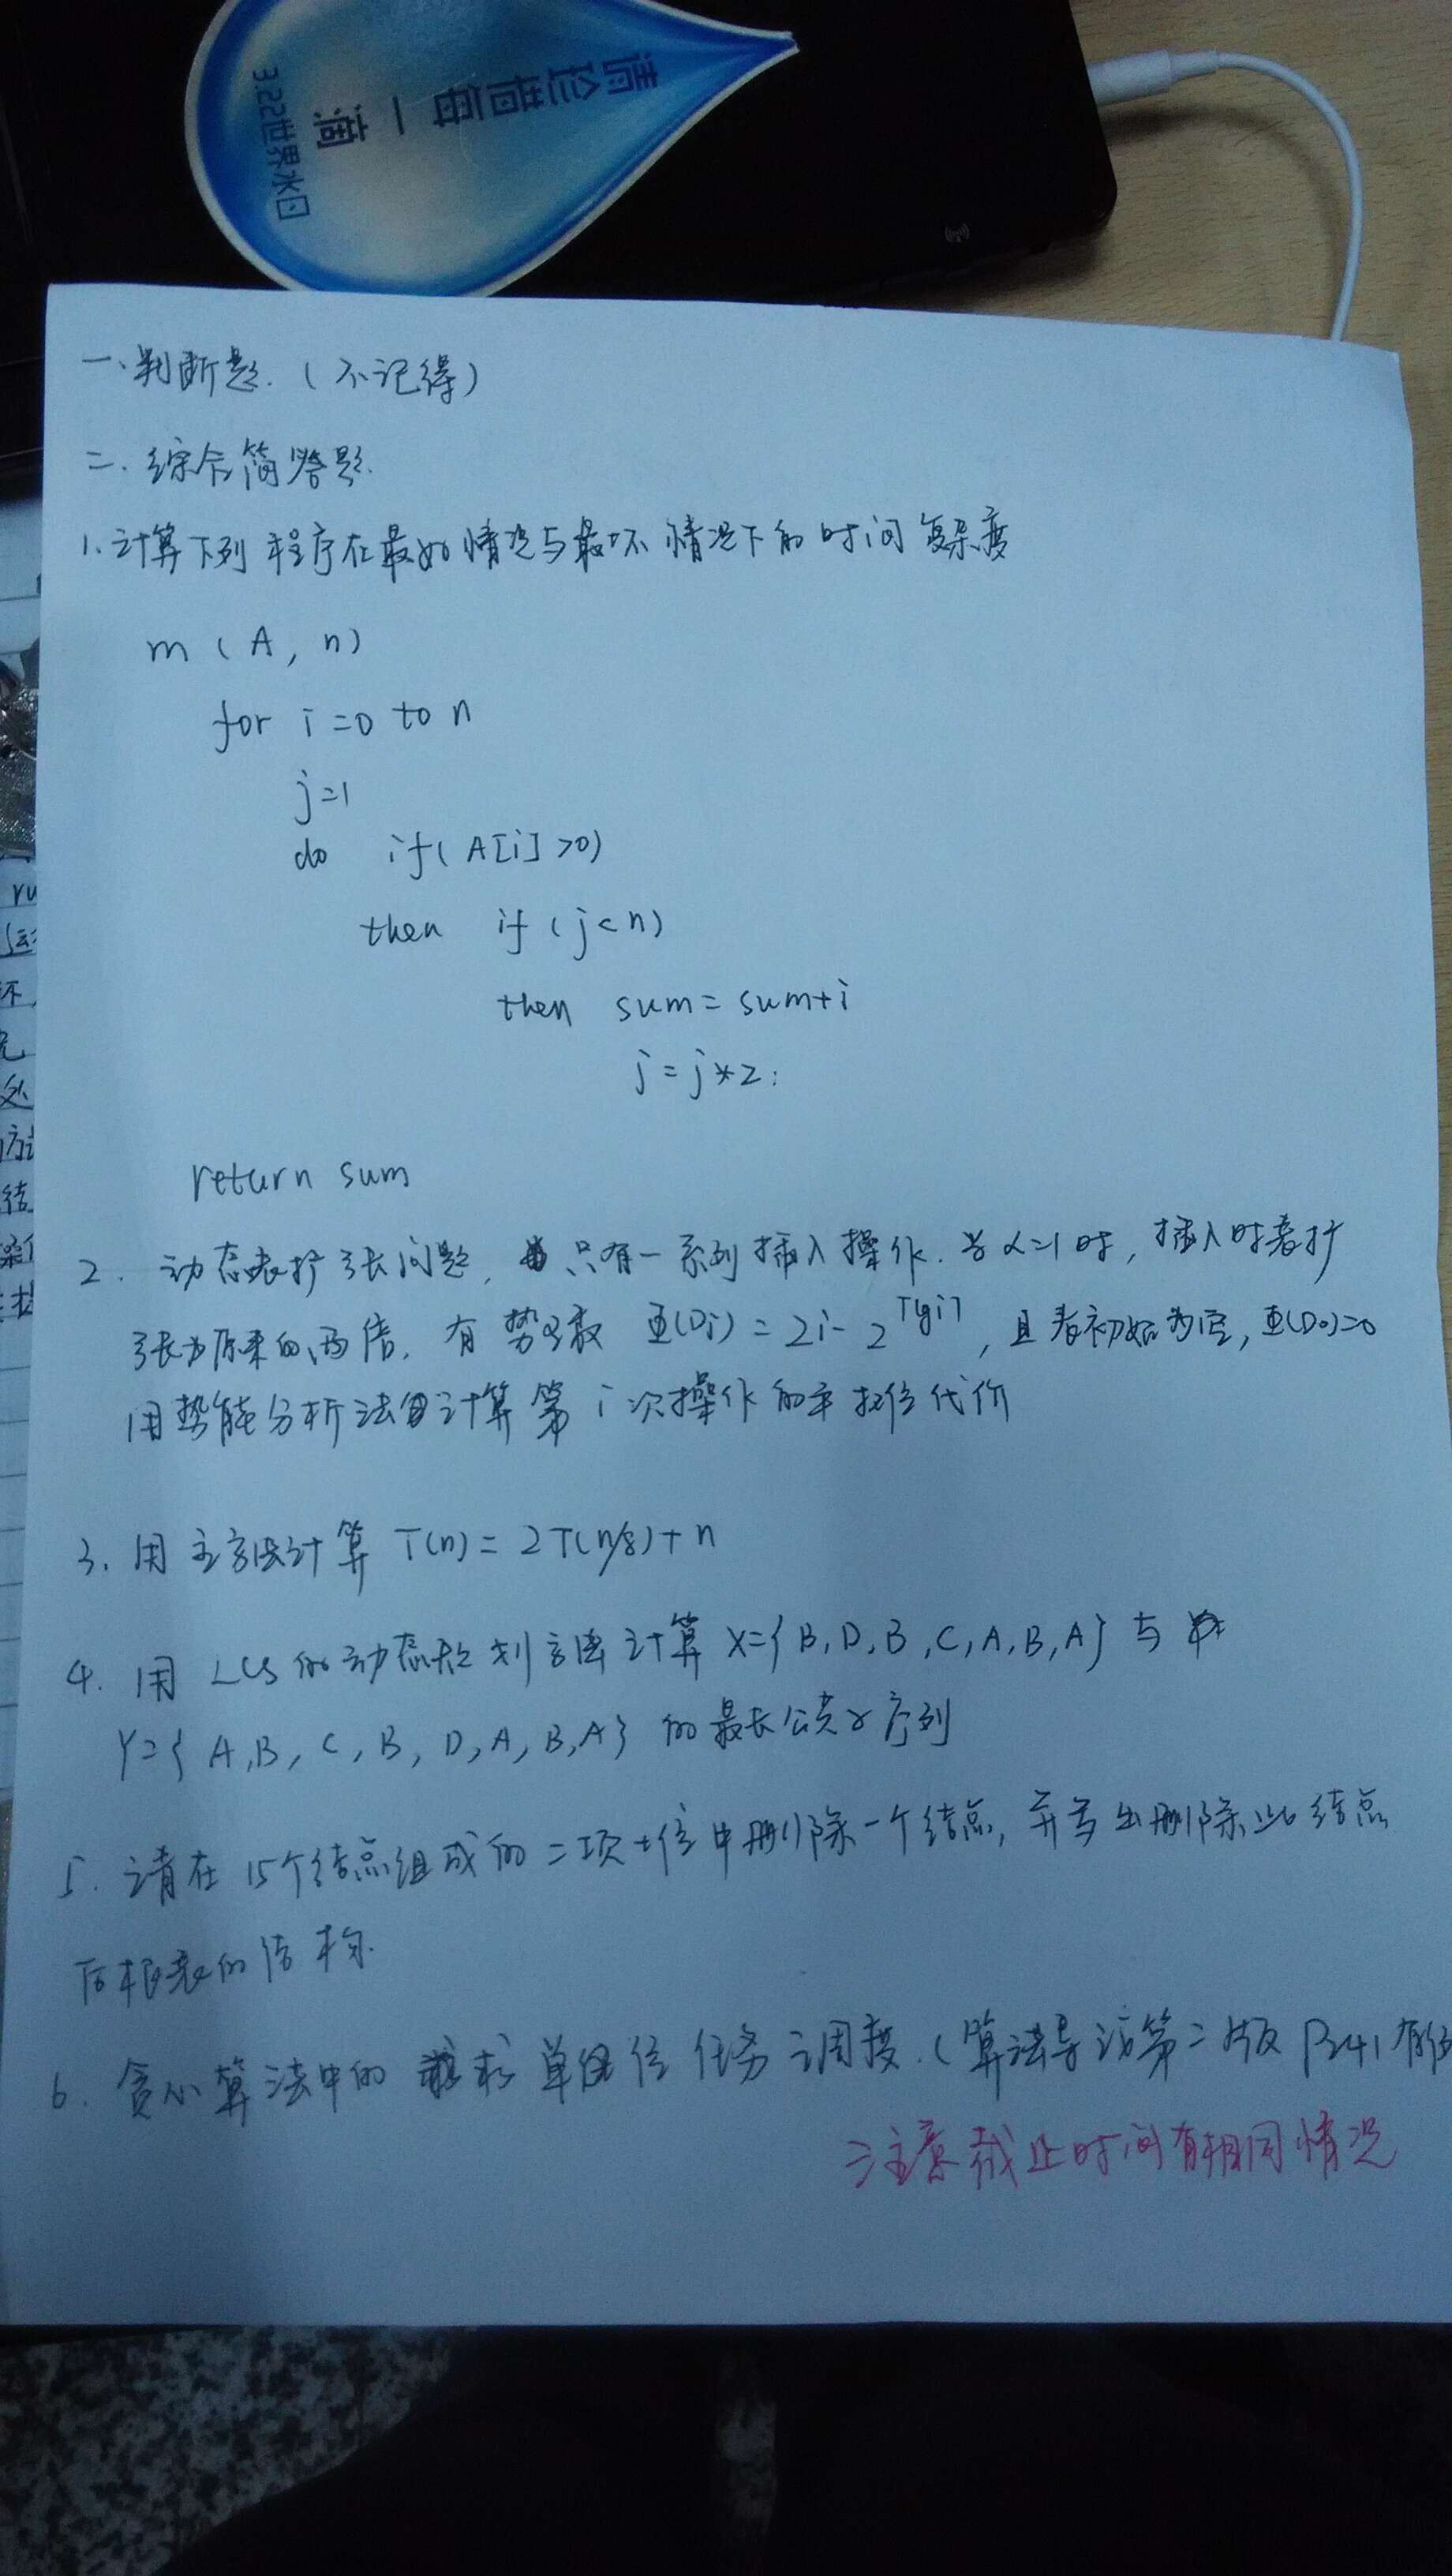 请珍惜每一滴
3.22世界水日
一、判断题.（不记得）
二.综合简答题.
1.计算下列程序在最好情况与最坏情况下的时间复杂度
m(A,n)
for i=0 to n
j=1
do if(A[i]>0)
then if(j<n)
then sum=sum+i
j=j*2;
return sum
2.动态表扩张问题,只有一系列插入操作.当α=1时,插入时表扩
张为原来的两倍.有势函数Φ(Di)=2i-2^⌈lgi⌉,且表初始为空,Φ(D0)=0
用势能分析法计算第i次操作的平摊代价
3.用主方法计算T(n)=2T(n/8)+n
4.用LCS的动态规划方法计算X={B,D,B,C,A,B,A}与
Y={A,B,C,B,D,A,B,A}的最长公共子序列
5.请在15个结点组成的二项堆中删除一个结点,并写出删除此结点
后根表的结构.
6.贪心算法中的求单位任务调度.(算法导论第二版P241有
注意截止时间有相同情况